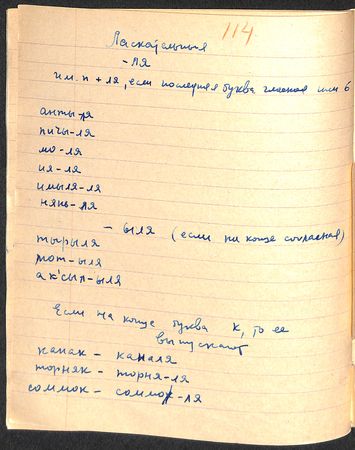 114
Ласкательныя
-ля
им.п + ля, если последняя буква гласная или б
анты-ля
пичы-ля
мо-ля
ия-ля
имыля-ля
нянь-ля
- ыля (если на конце согласная)
тырыля
мот-ыля
ак'сып-ыля
Если на конце буква к, то ее
выпускают
канак - каналя
торняк - торня-ля
соммок - соммо-ля